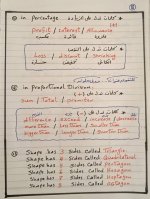 in Percentage
* كلمات تدل على الزيادة (+)
Profit / Interest / Allowance
* كلمات تدل على النقص
Loss / discount / Shrinking
خسارة
in Proportional Division:
* كلمات تدل على (+)
Sum / Total /
* كلمات تدل على (-)
difference / exceed / increase / decrease
more than / Less than / Shorter than
bigger than / longer than / Smaller than
Shape has 3 Sides called Triangle
Shape has 4 Sides called Quadrilateral
Shape has 5 Sides called Pentagon
Shape has 6 Sides called Hexagon
Shape has 7 Sides called Heptagon
Shape has 8 Sides called Octagon